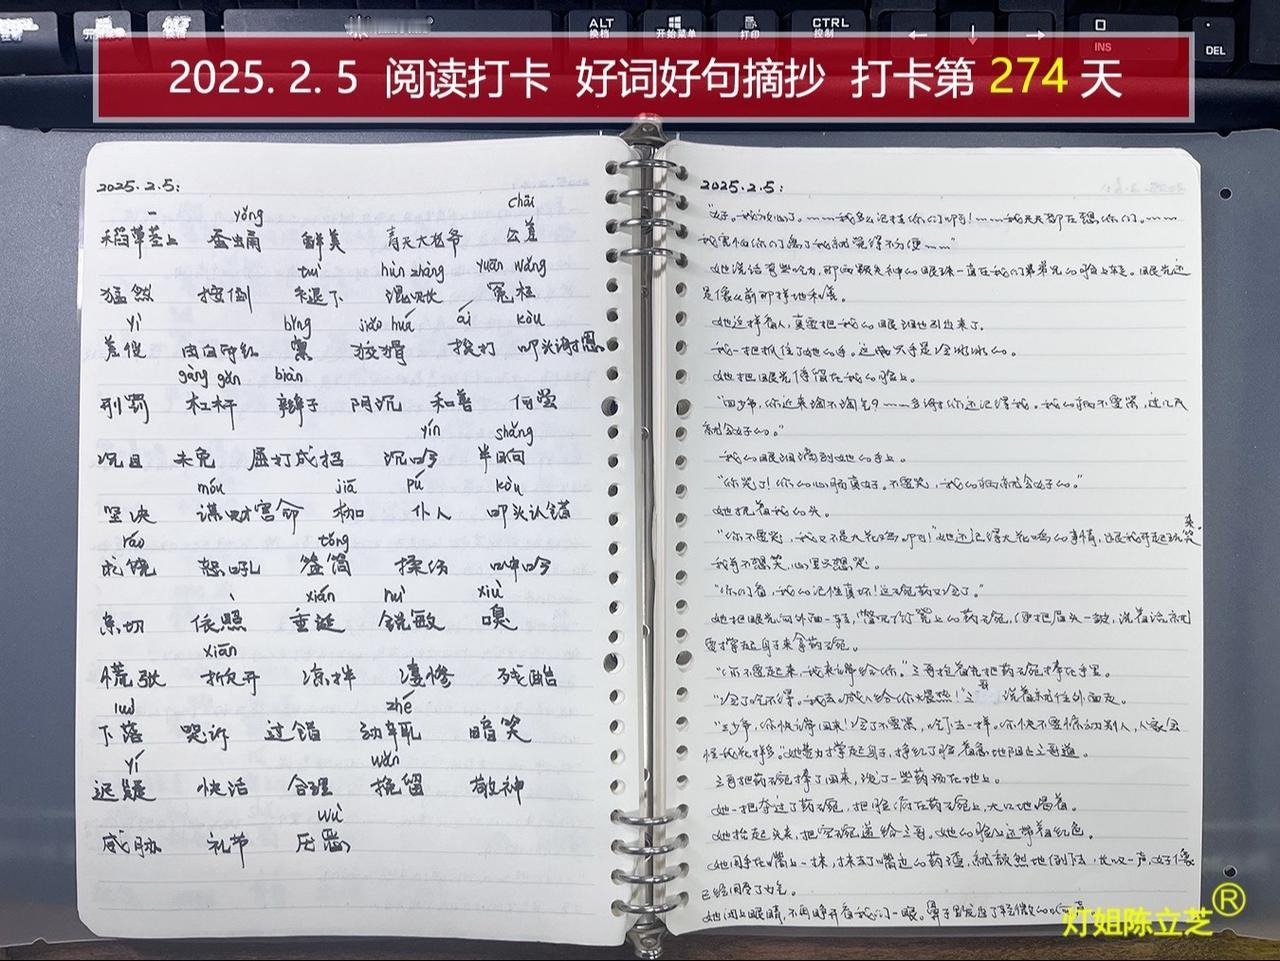 ALT
换档
开始菜单
打印
CTRL
控制
INS
DEL
2025. 2. 5 阅读打卡 好词好句摘抄 打卡第 274 天
2025.2.5:
yǒng chāi
稻草茎上 蚕蛹 鲜美 青天大老爷 公差
tuì hùn zhàng yuān wǎng
猛然 按倒 褪下 混账 冤枉
yì bǐng jiǎo huá ái kòu
差役 禀 狡猾 挨打 叩头谢恩
gàng gǎn biàn
刑罚 杠杆 辫子 阿沉 和善 何尝
yín shǎng
沉且 未免 屈打成招 沉吟 半晌
móu jiā pú kòu
坚决 谋财害命 枷 仆人 叩头认错
ráo tǒng
求饶 怒吼 签筒 操伤 呻吟
xián ruì xiù
亲切 依照 垂涎 锐敏 嗅
xiān
慌张 掀开 凉拌 凄惨 残酷
luò zhé
下落 哭诉 过错 动辄 暗笑
yí wǎn
迟疑 快活 合理 挽留 敬神
wù
威胁 礼节 厌恶
2025.2.5:
“好。我放心了。……我多么记挂你们啊！……我天天都在想你们。……
我害怕你们离了我就觉得不便……”
她说话有些吃力，那两颗失神的眼珠一直在我们弟弟兄的脸上转。眼光还
是像从前那样地和善。
她这样看人，真要把我的眼泪也引出来了。
我一把抓住了她的手。这两只手是冷冰冰的。
她把眼光停留在我的脸上。
“四少爷，你近来淘不淘气？……多谢你还记得我。我的病不要紧，过几天
就会好的。”
我的眼泪滴到她的手上。
“你哭了！你的心肠真好。不要哭，我的病就会好的。”
她抚着我的头。
“你不要哭，我又不是大花鸡啊！”她还记得大花鸡的事情，跟我开起玩笑来。
我并不想笑，心里只想哭。
“你们看，我的记性真坏！这碗药又冷了。”
她把眼光向外面一转，瞥见了凳上的药碗，便把眉头一皱，说着话就
要撑起身子来拿药碗。
“你不要起来，我来端给你。”三哥抢着先把药碗捧在手里。
“冷了吃不得。我去喊人给你煨热！”三哥说着就往外面走。
“三少爷，你快端回来！冷了不要紧，吃了一样。你快不要惊动别人，人家会
怪我花样多。”她费力撑起身子，挣红了脸，着急地阻止三哥道。
三哥把药碗捧了回来，泼了一些药汤在地上。
她一把夺过了药碗，把脸俯在药碗上，大口地喝着。
她抬起头来，把空碗递给三哥。她的脸上还带着红色。
她用手在嘴上一抹，抹去了嘴边的药渣，就颓然地倒下去，长叹一声，好像
已经用尽了力气。
她闭上眼睛，不再睁开看我们一眼。鼻子里发出了轻微的响声。
灯姐陈立芝®